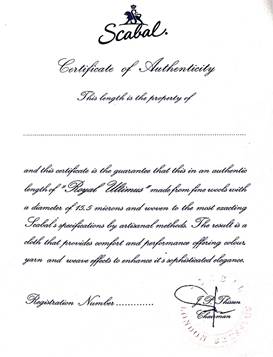 Scabal.
Certificate of Authenticity
This length is the property of
and this certificate is the guarantee that this in an authentic
length of "Royal Ultimus" made from fine wools with
a diameter of 15.5 microns and woven to the most exacting
Scabal's specifications by artisanal methods. The result is a
cloth that provides comfort and performance offering colour
yarn and weave effects to enhance it's sophisticated elegance.
Registration Number.............
J.P. Thissen
Chairman
LONDON